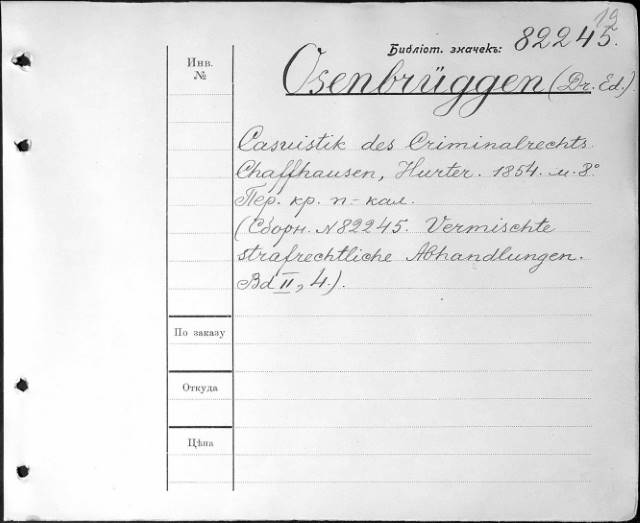 12
Библіот. значекъ: 82245.
Инв. №
Osenbrüggen (Dr. Ed.)
Casuistik des Criminalrechts.
Chaffhausen, Hurter. 1854. м. 8°
Пер. кр. п.-кал.
(Сборн. №82245. Vermischte
strafrechtliche Abhandlungen.
Bd II, 4.).
По заказу
Откуда
Цѣна